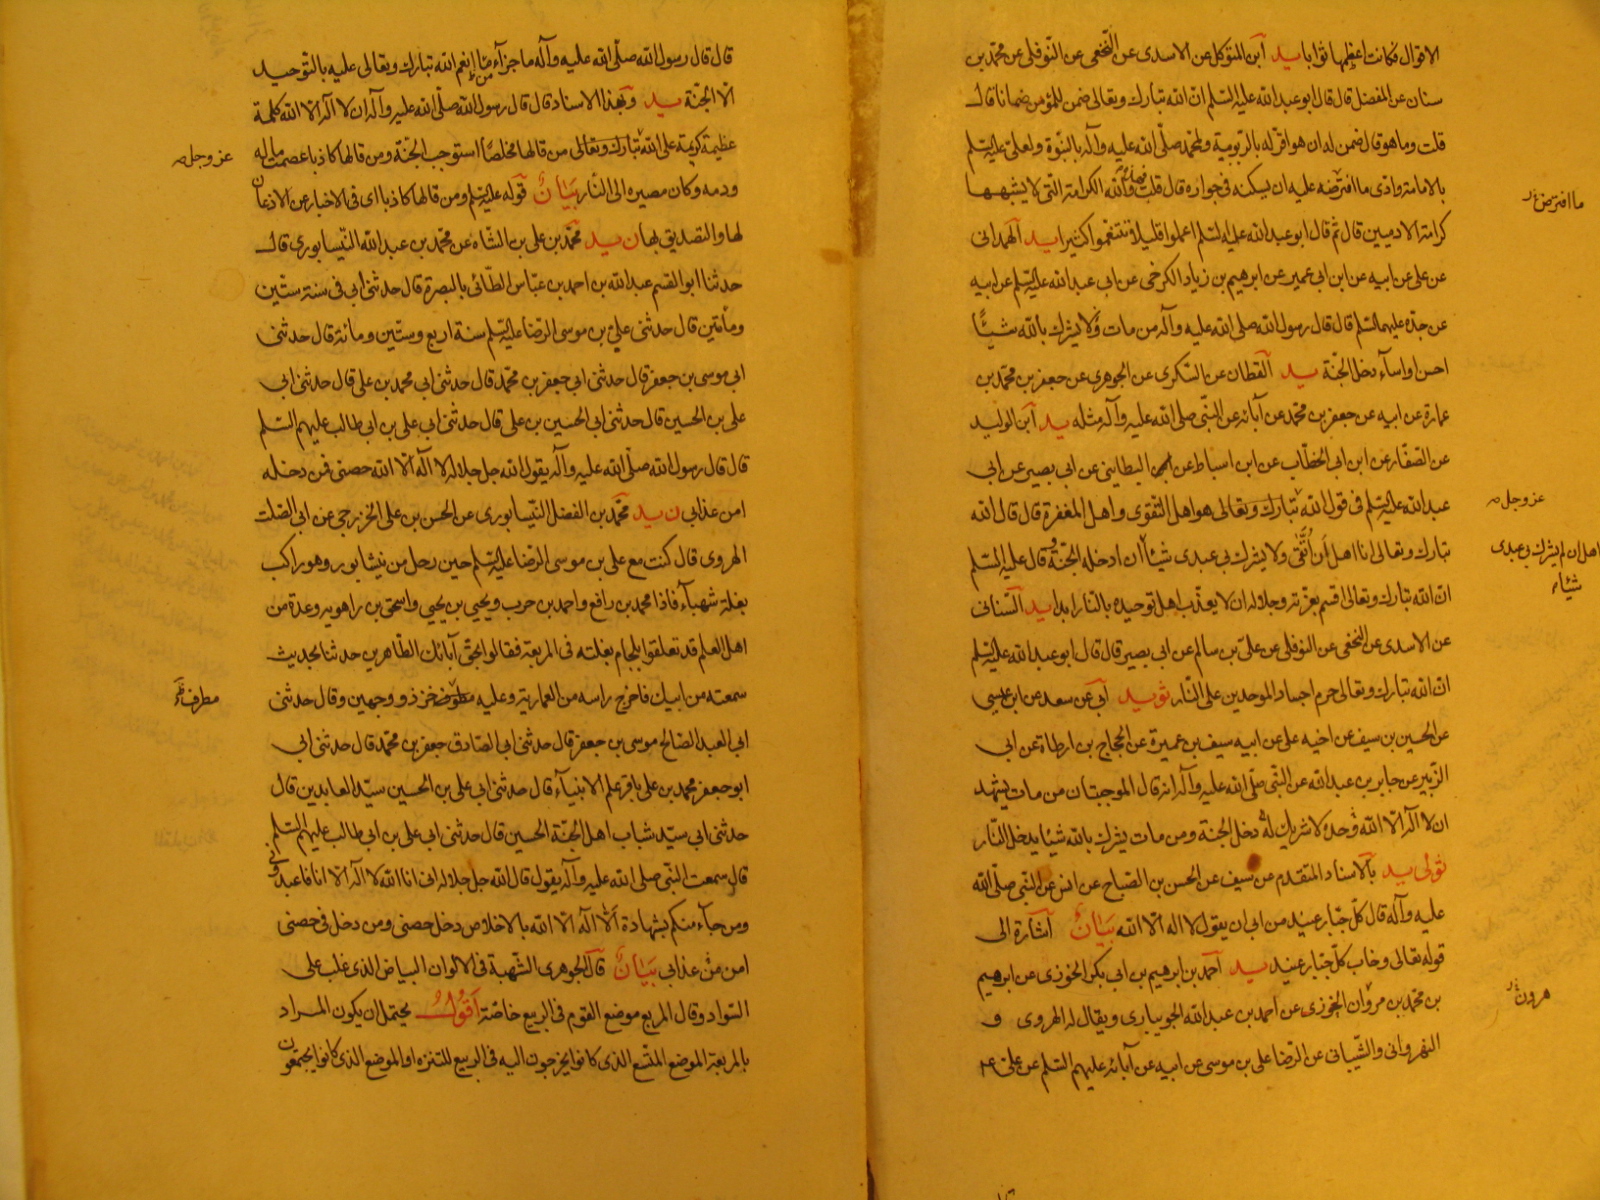 الاقوال فكانت اعظمها ثوابا يد ابن المتوكل عن الاسدى عن النخعى عن النوفلى عن محمد بن
سنان عن المفضل قال قال ابو عبد الله عليه السلم ان الله تبارك وتعالى ضمن للمؤمن ضمانا قال
قلت وما هو قال ضمن له ان هو اقر له بالربوبية ولمحمد صلى الله عليه وآله بالنبوة ولعلى عليه السلم
بالامامة وادى ما افترضه عليه ان يسكنه فى جواره قال قلت فهذه والله الكرامة التى لا يشبهها
ما افترض
كرامة الادميين قال ثم قال ابو عبد الله عليه السلم اعملوا قليلا تتنعموا كثيرا يد الهمدانى
عن على عن ابيه عن ابن ابى عمير عن ابرهيم بن زياد الكرخى عن ابى عبد الله عليه السلم عن ابيه
عن جده عليهما السلم قال قال رسول الله صلى الله عليه وآله من مات ولا يشرك بالله شيئا
احسن او اسآء دخل الجنة يد القطان عن السكرى عن الجوهرى عن جعفر بن محمد بن
عمارة عن ابيه عن جعفر بن محمد عن آبائه عن النبى صلى الله عليه وآله مثله يد ابن الوليد
عن الصفار عن ابن ابى الخطاب عن ابن اسباط عن البطاينى عن ابى بصير عن ابى
عبد الله عليه السلم فى قول الله تبارك وتعالى هو اهل التقوى واهل المغفرة قال قال الله
عز وجل
تبارك وتعالى انا اهل ان اتقى ولا يشرك بى عبدى شيئا ان ادخله الجنة وقال عليه السلم
اهل ان لم يشرك بى عبدى
شيئا
ان الله تبارك وتعالى اقسم بعزته وجلاله ان لا يعذب اهل توحيده بالنار ابدا يد السنانى
عن الاسدى عن النخعى عن النوفلى عن على بن سالم عن ابى بصير قال قال ابو عبد الله عليه السلم
ان الله تبارك وتعالى حرم اجساد الموحدين على النار ثو يد ابى عن سعد عن ابن عيسى
عن الحسين بن سيف عن اخيه على عن ابيه سيف بن عميرة عن الحجاج بن ارطاة عن ابى
الزبير عن جابر بن عبد الله عن النبى صلى الله عليه وآله انه قال الموجبتان من مات يشهد
ان لا اله الا الله وحده لا شريك له دخل الجنة ومن مات يشرك بالله شيئا يدخل النار
ثو لى يد بالاسناد المتقدم عن سيف عن الحسن بن الصباح عن انس عن النبى صلى الله
عليه وآله قال كل جبار عنيد من ابى ان يقول لا اله الا الله بيان اشارة الى
قوله تعالى وخاب كل جبار عنيد يد احمد بن ابرهيم بن ابى بكر الخوزى عن ابرهيم
بن محمد بن مروان الخوزى عن احمد بن عبد الله الجويبارى ويقال له الهروى و
هرون
النهروانى والشيبانى عن الرضا على بن موسى عن ابيه عن آبائه عليهم السلم عن على ع
قال قال رسول الله صلى الله عليه وآله ما جزآء من انعم الله تبارك وتعالى عليه بالتوحيد
الا الجنة يد وبهذا الاسناد قال قال رسول الله صلى الله عليه وآله ان لا اله الا الله كلمة
عظيمة كريمة على الله تبارك وتعالى من قالها مخلصا استوجب الجنة ومن قالها كاذبا عصمت ماله
عز وجل
ودمه وكان مصيره الى النار بيان قوله عليه السلم ومن قالها كاذبا اى فى الاخبار عن الاذعان
لها والتصديق بها ن يد محمد بن على بن الشاه عن محمد بن عبد الله النيسابورى قال
حدثنا ابو القسم عبد الله بن احمد بن عباس الطائى بالبصرة قال حدثنى ابى فى سنة ستين
ومأتين قال حدثنى على بن موسى الرضا عليه السلم سنة اربع وستين ومائة قال حدثنى
ابى موسى بن جعفر قال حدثنى ابى جعفر بن محمد قال حدثنى ابى محمد بن على قال حدثنى ابى
على بن الحسين قال حدثنى ابى الحسين بن على قال حدثنى ابى على بن ابى طالب عليهم السلم
قال قال رسول الله صلى الله عليه وآله يقول الله جل جلاله لا اله الا الله حصنى فمن دخله
امن عذابى ن يد محمد بن الفضل النيسابورى عن الحسن بن على الخزرجى عن ابى الصلت
الهروى قال كنت مع على بن موسى الرضا عليه السلم حين رحل من نيشابور وهو راكب
بغلة شهبآء فاذا محمد بن رافع واحمد بن حرب ويحيى بن يحيى واسحق بن راهويه وعدة من
اهل العلم قد تعلقوا بلجام بغلته فى المربعة فقالوا بحق آبائك الطاهرين حدثنا بحديث
سمعته من ابيك فاخرج راسه من العمارية وعليه مطرف خز ذو وجهين وقال حدثنى
مطرف
ابى العبد الصالح موسى بن جعفر قال حدثنى ابى الصادق جعفر بن محمد قال حدثنى ابى
ابو جعفر محمد بن على باقر علم الانبيآء قال حدثنى ابى على بن الحسين سيد العابدين قال
حدثنى ابى سيد شباب اهل الجنة الحسين قال حدثنى ابى على بن ابى طالب عليهم السلم
قال سمعت النبى صلى الله عليه وآله يقول قال الله جل جلاله انى انا الله لا اله الا انا فاعبدونى
ومن جآء منكم بشهادة ان لا اله الا الله بالاخلاص دخل حصنى ومن دخل فى حصنى
امن من عذابى بيان قال الجوهرى الشهبة فى الالوان البياض الذى غلب على
السواد وقال المربع موضع القوم فى الربيع خاصة اقول يحتمل ان يكون المراد
بالمربعة الموضع المتسع الذى كانوا يخرجون اليه فى الربيع للتنزه او الموضع الذى كانوا يجتمعون